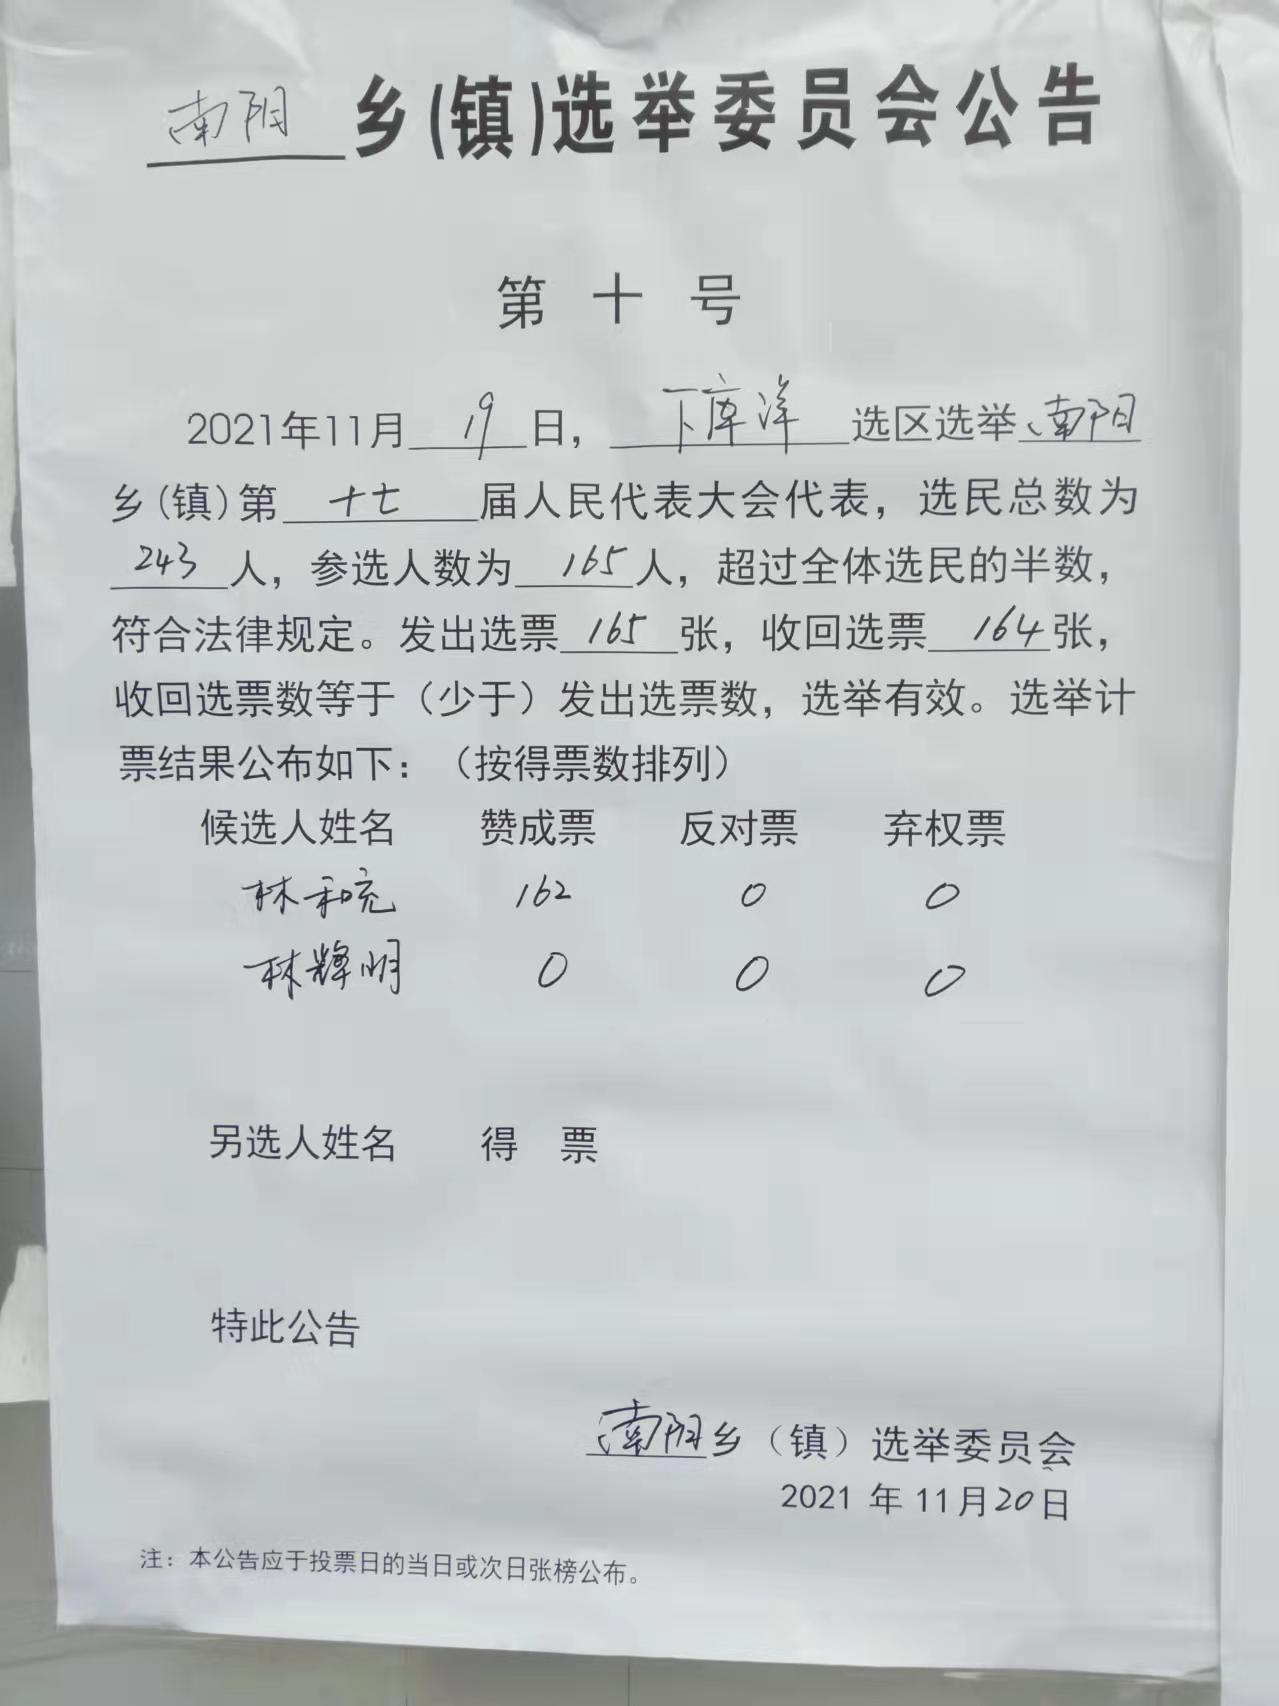 南阳 乡(镇)选举委员会公告
第 十 号
2021年11月 19 日， 下库洋 选区选举 南阳
乡(镇)第 十七 届人民代表大会代表，选民总数为
243 人，参选人数为 165 人，超过全体选民的半数，
符合法律规定。发出选票 165 张，收回选票 164 张，
收回选票数等于（少于）发出选票数，选举有效。选举计
票结果公布如下：（按得票数排列）
候选人姓名 赞成票 反对票 弃权票
林和亮 162 0 0
林辉明 0 0 0
另选人姓名 得 票
特此公告
南阳 乡（镇）选举委员会
2021 年 11月20日
注：本公告应于投票日的当日或次日张榜公布。